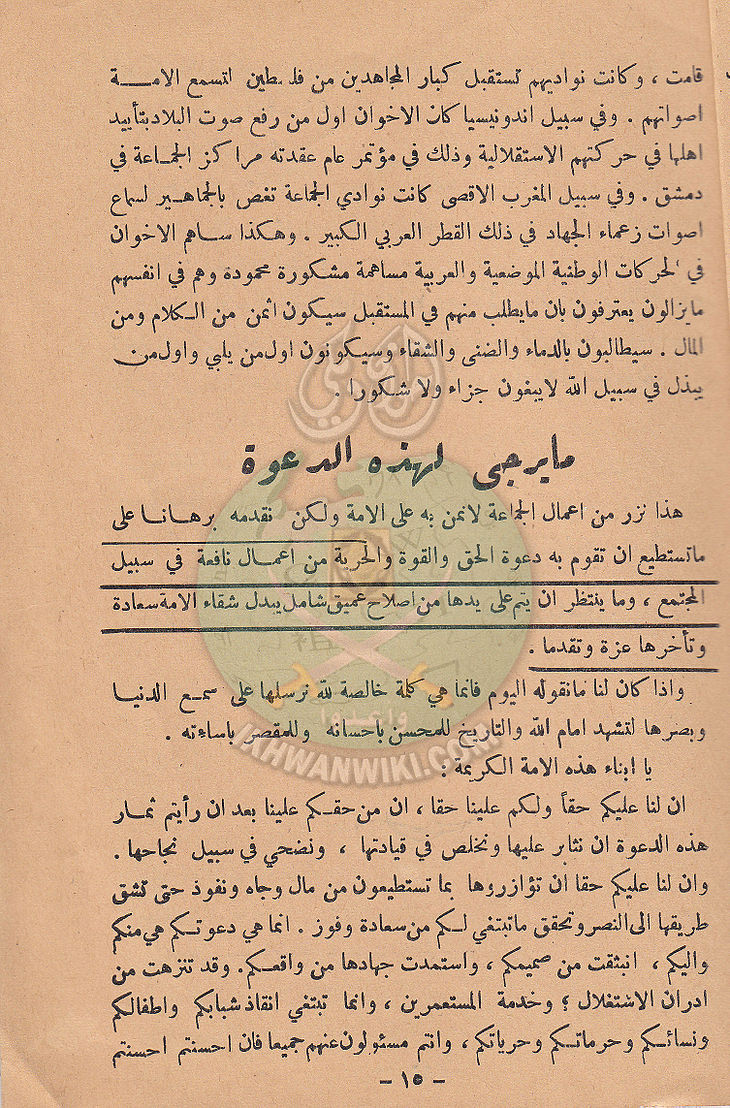 قامت ، وكانت نواديهم تستقبل كبار المجاهدين من فلسطين لتسمع الامة
اصواتهم . وفي سبيل اندونيسيا كان الاخوان اول من رفع صوت البلاد بتأييد
اهلها في حركتهم الاستقلالية وذلك في مؤتمر عام عقدته مراكز الجماعة في
دمشق . وفي سبيل المغرب الاقصى كانت نوادي الجماعة تغص بالجماهير لسماع
اصوات زعماء الجهاد في ذلك القطر العربي الكبير . وهكذا ساهم الاخوان
في الحركات الوطنية الموضعية والعربية مساهمة مشكورة محمودة وهم في انفسهم
مايزالون يعترفون بان مايطلب منهم في المستقبل سيكون أثمن من الكلام ومن
المال . سيطالبون بالدماء والضنى والشقاء وسيكونون اول من يلبي واول من
يبذل في سبيل الله لايبغون جزاء ولا شكورا .
مايرجى لهذه الدعوة
هذا نزر من اعمال الجماعة لانمن به على الامة ولكن نقدمه برهانا على
ماتستطيع ان تقوم به دعوة الحق والقوة والحرية من اعمال نافعة في سبيل
المجتمع ، وما ينتظر ان يتم على يدها من اصلاح عميق شامل يبدل شقاء الامة سعادة
وتأخرها عزة وتقدما .
واذا كان لنا مانقوله اليوم فانما هي كلمة خالصة لله نرسلها على سمع الدنيا
وبصرها لتشهد امام الله والتاريخ للمحسن باحسانه وللمقصر باساءته .
يا ابناء هذه الامة الكريمة :
ان لنا عليكم حقاً ولكم علينا حقا ، ان من حقكم علينا بعد ان رأيتم ثمار
هذه الدعوة ان نثابر عليها ونخلص في قيادتها ، ونضحي في سبيل نجاحها .
وان لنا عليكم حقا ان تؤازروها بما تستطيعون من مال وجاه ونفوذ حتى تشق
طريقها الى النصر وتحقق ماتبتغي لكم من سعادة وفوز . انما هي دعوتكم هي منكم
واليكم ، انبثقت من صميمكم ، واستمدت جهادها من واقعكم . وقد تنزهت من
ادران الاستغلال ؛ وخدمة المستعمرين ، وانما تبتغي انقاذ شبابكم واطفالكم
ونسائكم وحرماتكم وحرياتكم ، وانتم مسئولون عنهم جميعا فان احسنتم احسنتم
- ١٥ -
IKHWANWIKI.COM
وأعدوا